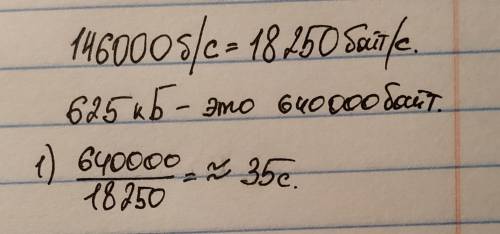 146000б/с = 18250байт/с.
625кБ - это 640000байт.
1) 640000/18250 = ≈ 35с.